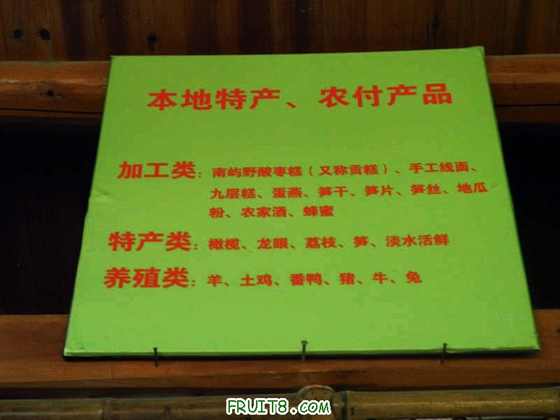 本地特产、农付产品
加工类：南屿野酸枣糕（又称贡糕）、手工线面、
九层糕、蛋燕、笋干、笋片、笋丝、地瓜
粉、农家酒、蜂蜜
特产类：橄榄、龙眼、荔枝、笋、淡水活鲜
养殖类：羊、土鸡、番鸭、猪、牛、兔
FRUIT8.COM